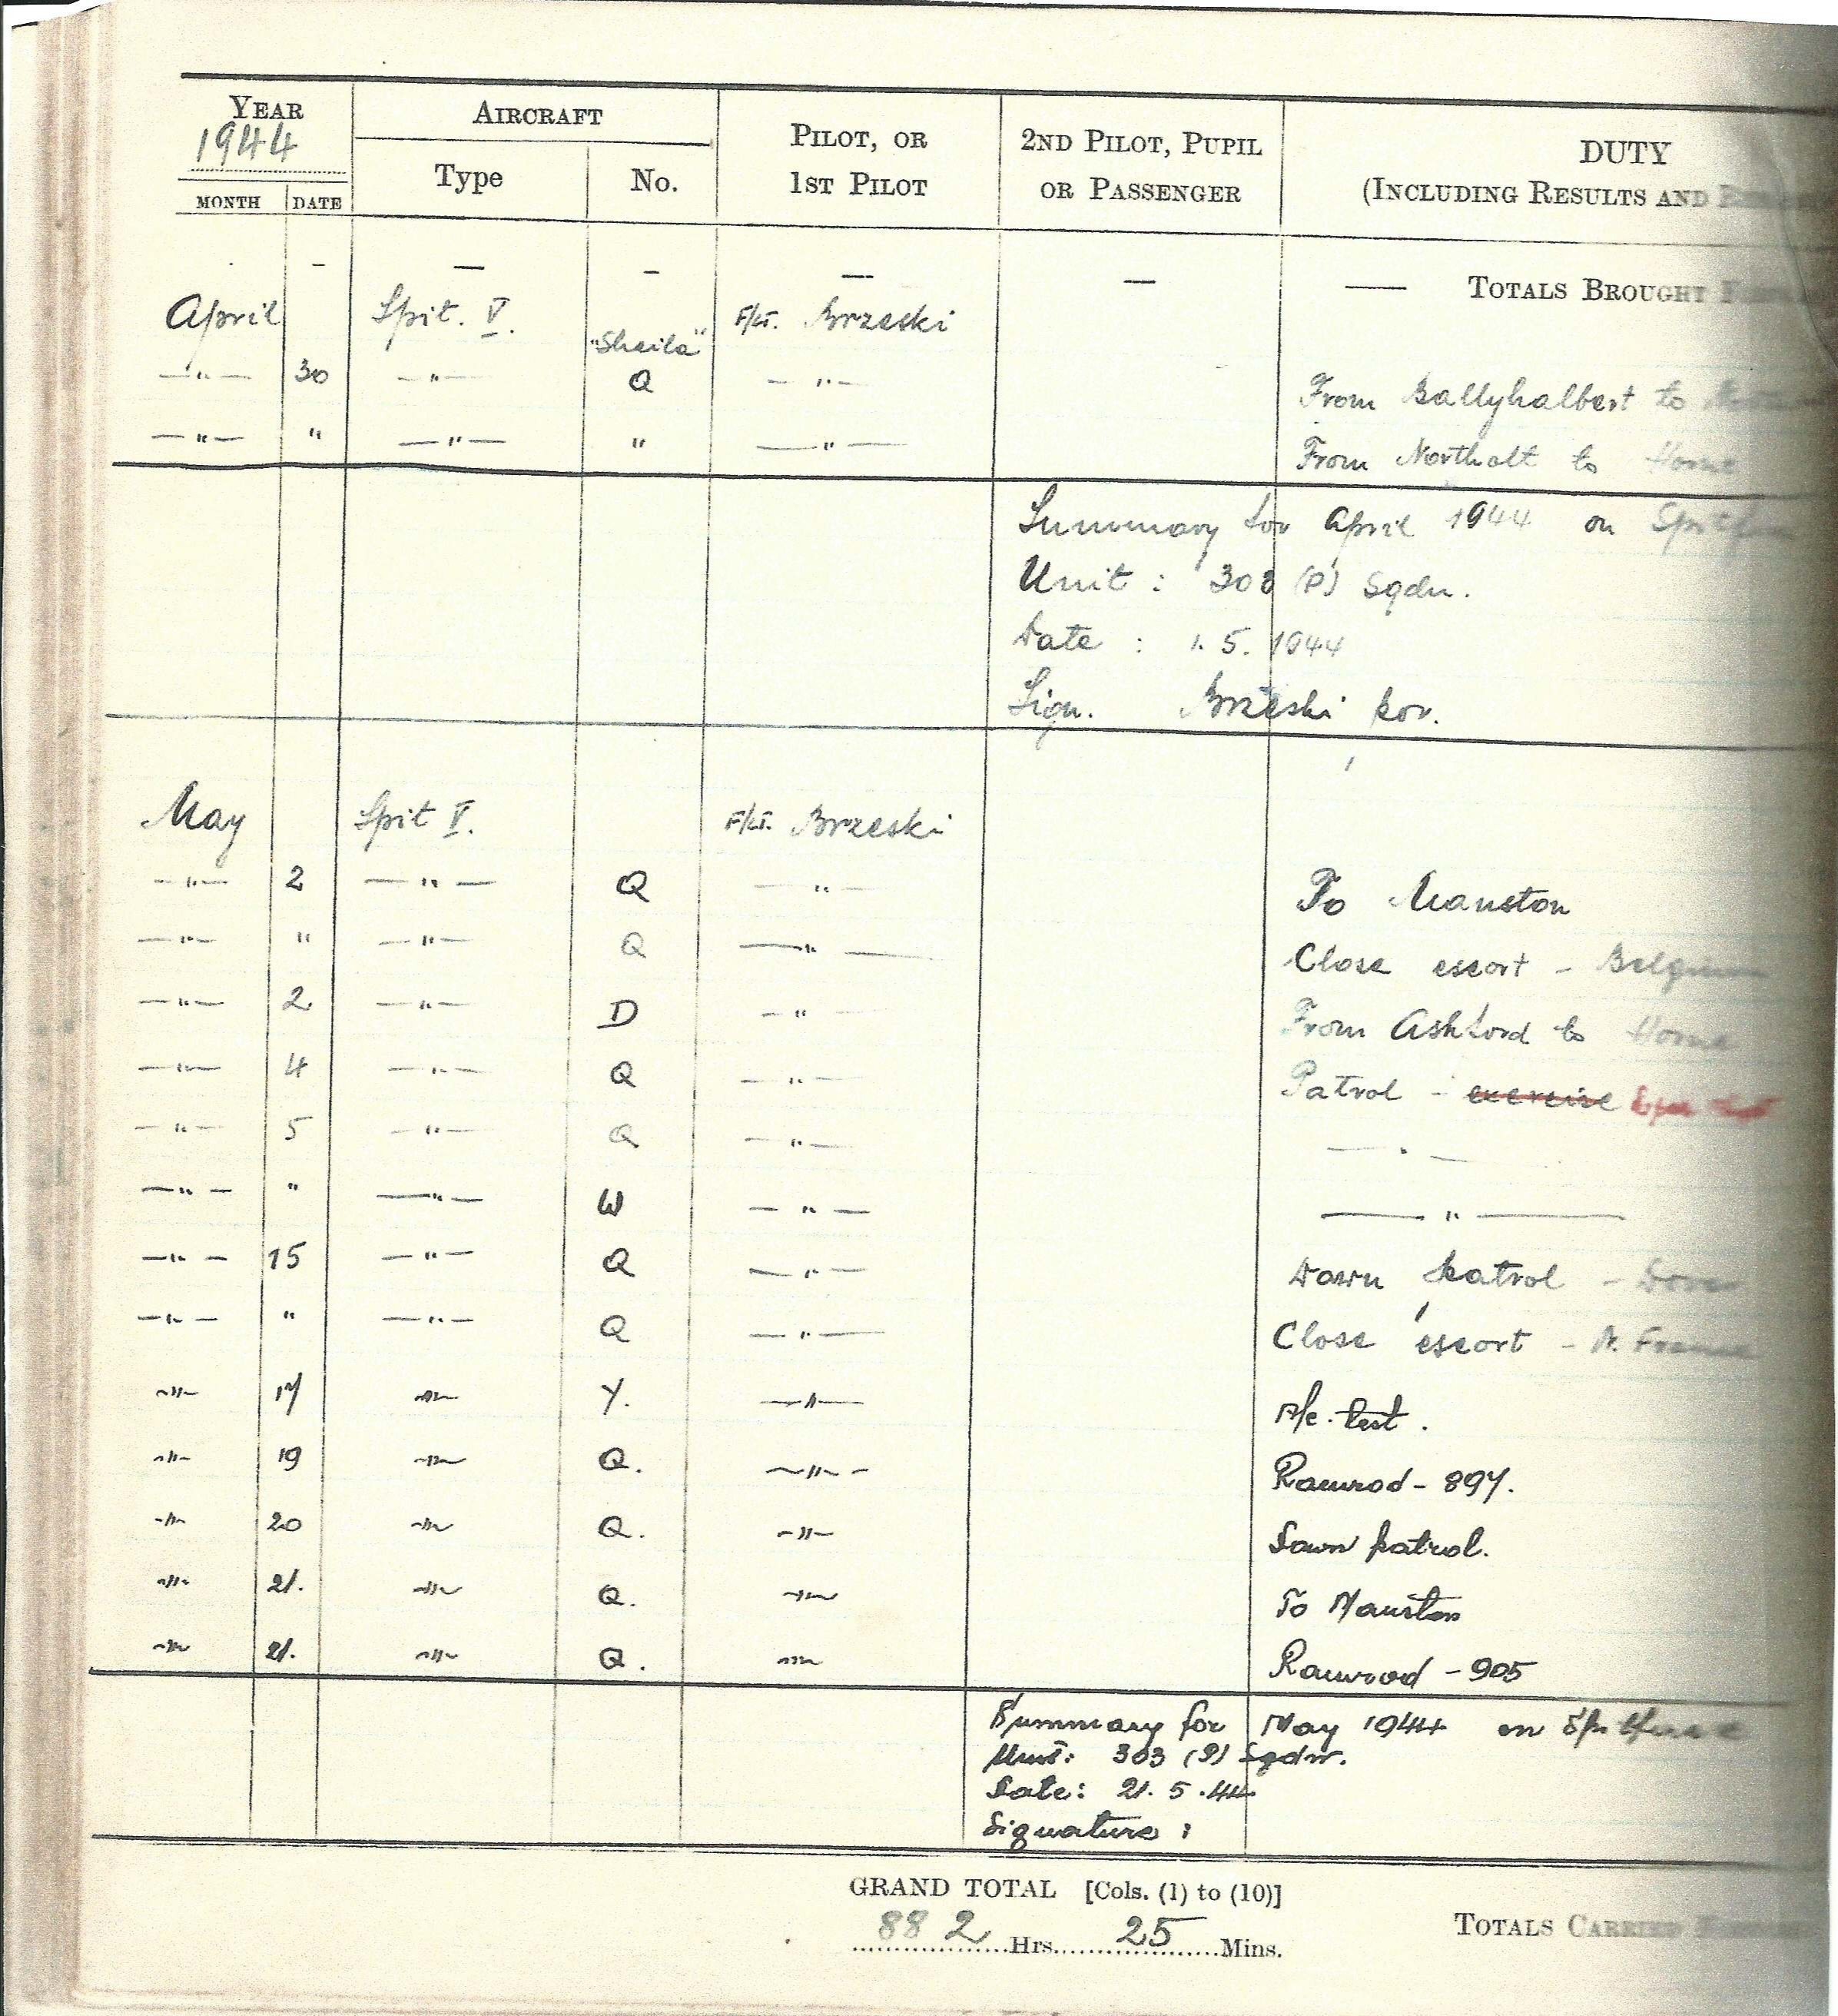 YEAR AIRCRAFT PILOT, OR 2ND PILOT, PUPIL DUTY
1944 Type No. 1ST PILOT OR PASSENGER (INCLUDING RESULTS AND
MONTH DATE
- — - — — — TOTALS BROUGHT
April Spit. V. F/Lt. Brzeski
"Sheila"
—"— 30 —"— Q —"— From Ballyhalbert to
—"— " —"— " —"— From Northolt to Home
Summary for April 1944 on
Unit : 303 (P) Sqdn.
Date : 1. 5. 1944
Sign. Brzeski por.
May Spit V. F/Lt. Brzeski
—"— 2 —"— Q —"— To Manston
—"— " —"— Q —"— Close escort - Belgium
—"— 2. —"— D —"— From Ashford to Home
—"— 4 —"— Q —"— Patrol - exercise
—"— 5 —"— Q —"— —"—
—"— " —"— W —"— —"—
—"— 15 —"— Q —"— Dawn patrol -
—"— " —"— Q —"— Close escort - N. France
—"— 17 —"— Y. —"— A/c. test.
—"— 19 —"— Q. —"— Ramrod - 897.
—"— 20 —"— Q. —"— Dawn patrol.
—"— 21. —"— Q. —"— To Manston
—"— 21. —"— Q. —"— Ramrod - 905
Summary for May 1944 on
Unit: 303 (P) Sqdn.
Date: 21. 5. 44
Signature :
GRAND TOTAL [Cols. (1) to (10)]
882 Hrs. 25 Mins. TOTALS CARRIED